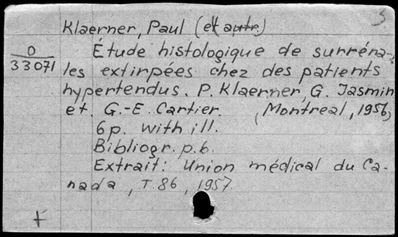 3
Klaerner, Paul (et autr.)
0
33071
Etude histologique de surréna-
les extirpées chez des patients
hypertendus. P. Klaerner, G. Jasmin
et. G.-E. Cartier. (Montreal, 1956)
6p. with ill.
Bibliogr. p.6.
Extrait: Union médical du Ca-
nada, T.86, 1957